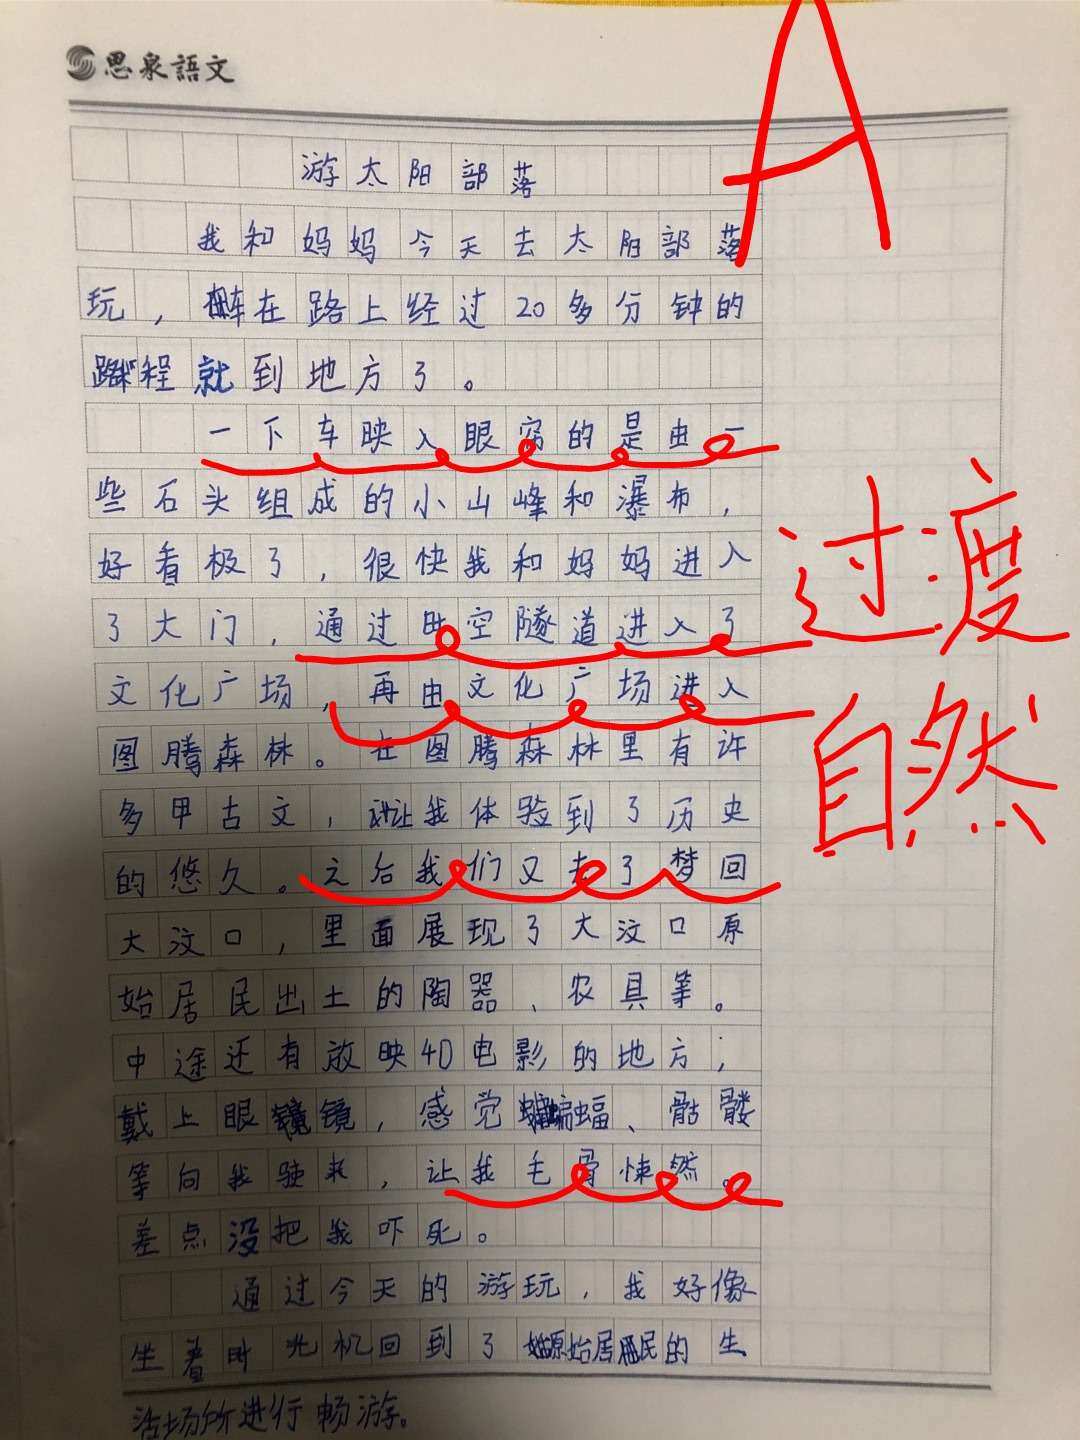 思泉語文
A
游太阳部落
我和妈妈今天去太阳部落
玩，在路上经过20多分钟的
路程就到地方了。
一下车映入眼帘的是由一
些石头组成的小山峰和瀑布，
好看极了，很快我和妈妈进入
了大门，通过时空隧道进入了
文化广场，再由文化广场进入
图腾森林。在图腾森林里有许
多甲古文，让我体验到了历史
的悠久。之后我们又去了梦回
大汶口，里面展现了大汶口原
始居民出土的陶器、农具等。
中途还有放映4D电影的地方；
戴上眼镜，感觉蝙蝠、骷髅
等向我驶来，让我毛骨悚然。
差点没把我吓死。
通过今天的游玩，我好像
坐着时光机回到了原始居民的生
活场所进行畅游。
过渡
自然